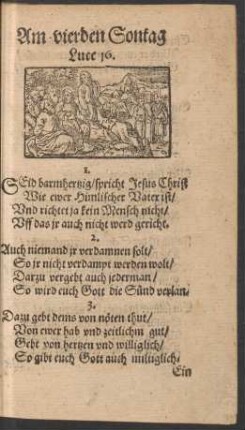 Am vierden Sontag
Luce 16.
1.
SEid barmhertzig/spricht Jesus Christ
Wie ewer Himlischer Vater ist/
Vnd richtet ja kein Mensch nicht/
Vff das jr auch nicht werd gericht.
2.
Auch niemand jr verdammen solt/
So jr nicht verdampt werden wolt/
Darzu vergebt auch jederman/
So wird euch Gott die Sünd verlan.
3.
Dazu gebt dems von nöten thut/
Von ewer hab vnd zeitlichm gut/
Gebt von hertzen vnd williglich/
So gibt euch Gott auch miltiglich.
Ein